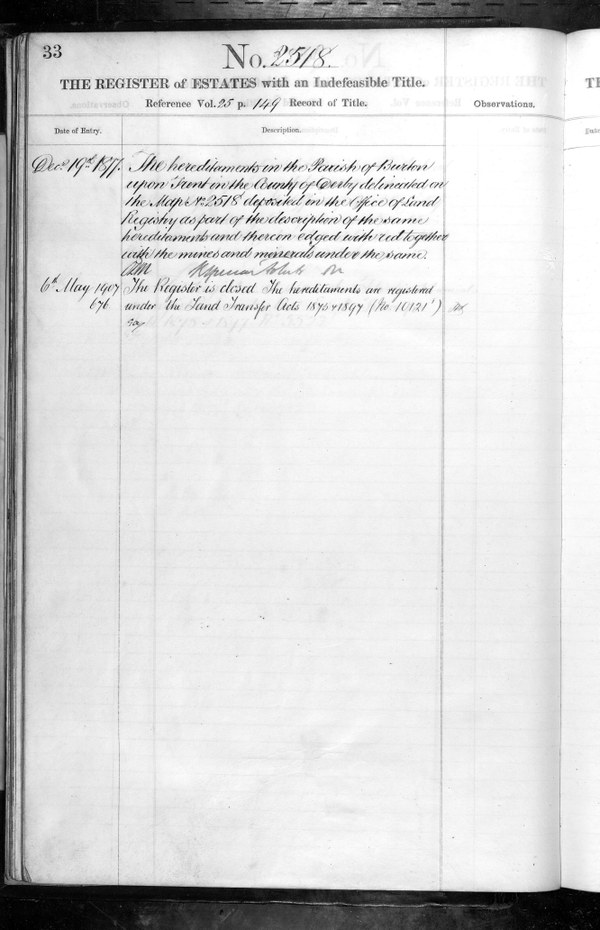 33
No. 2518.
THE REGISTER of ESTATES with an Indefeasible Title.
Reference Vol. 25 p. 149 Record of Title.
Observations.
Date of Entry.
Description.
Decr. 19th 1877. The hereditaments in the Parish of Burton
upon Trent in the County of Derby delineated on
the Map No. 2518 deposited in the Office of Land
Registry as part of the description of the same
hereditaments and thereon edged with red together
with the mines and minerals under the same.
6th May 1907 The Register is closed The hereditaments are registered
676 under the Land Transfer Acts 1875 & 1897 (No 10121)